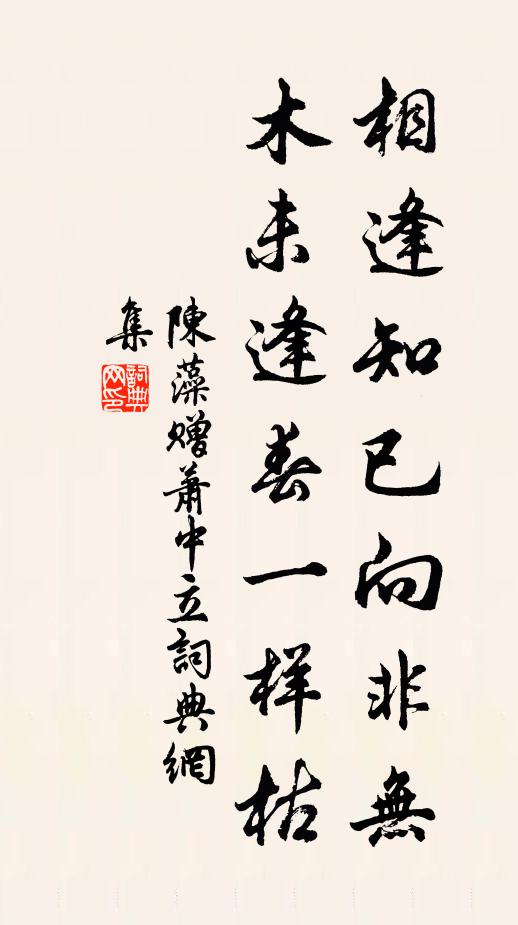 相逢知已向非無
木未逢春一样枯
陳藻贈萧中立詞典網
集
詞典网印